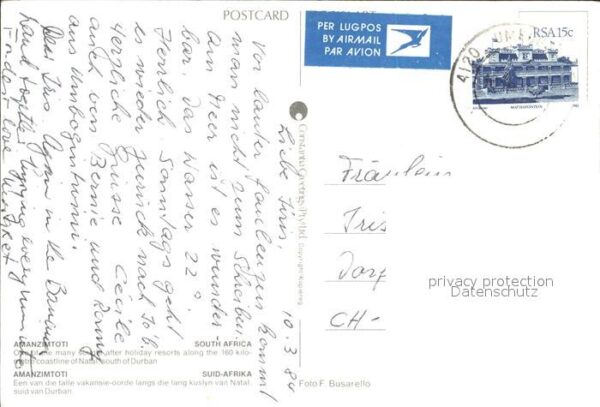 POSTCARD
PER LUGPOS
BY AIRMAIL
PAR AVION
RSA 15c
4120
10.3.84
Liebe Iris,
Vor lauter faulenzen kommt
man nicht zum Schreiben
am Meer ist es wunder-
bar. Das Wasser 22°
Herrlich. Sonntags geht
es wieder zurück nach Jo'b.
Herzliche Grüsse Cécile
auch von Bernie und
aus Umbogintwini.
Dear Iris Again in the
hand together enjoying every minute
Fondest love
Constantia Greetings (Pty) Ltd.
Copyright
Fräulein
Iris
Dorf
CH-
privacy protection
Datenschutz
AMANZIMTOTI SOUTH AFRICA
One of the many sought after holiday resorts along the 160 kilo-
metre coastline of Natal south of Durban
AMANZIMTOTI SUID-AFRIKA
Een van die talle vakansie-oorde langs die lang kuslyn van Natal,
suid van Durban.
Foto F. Busarello